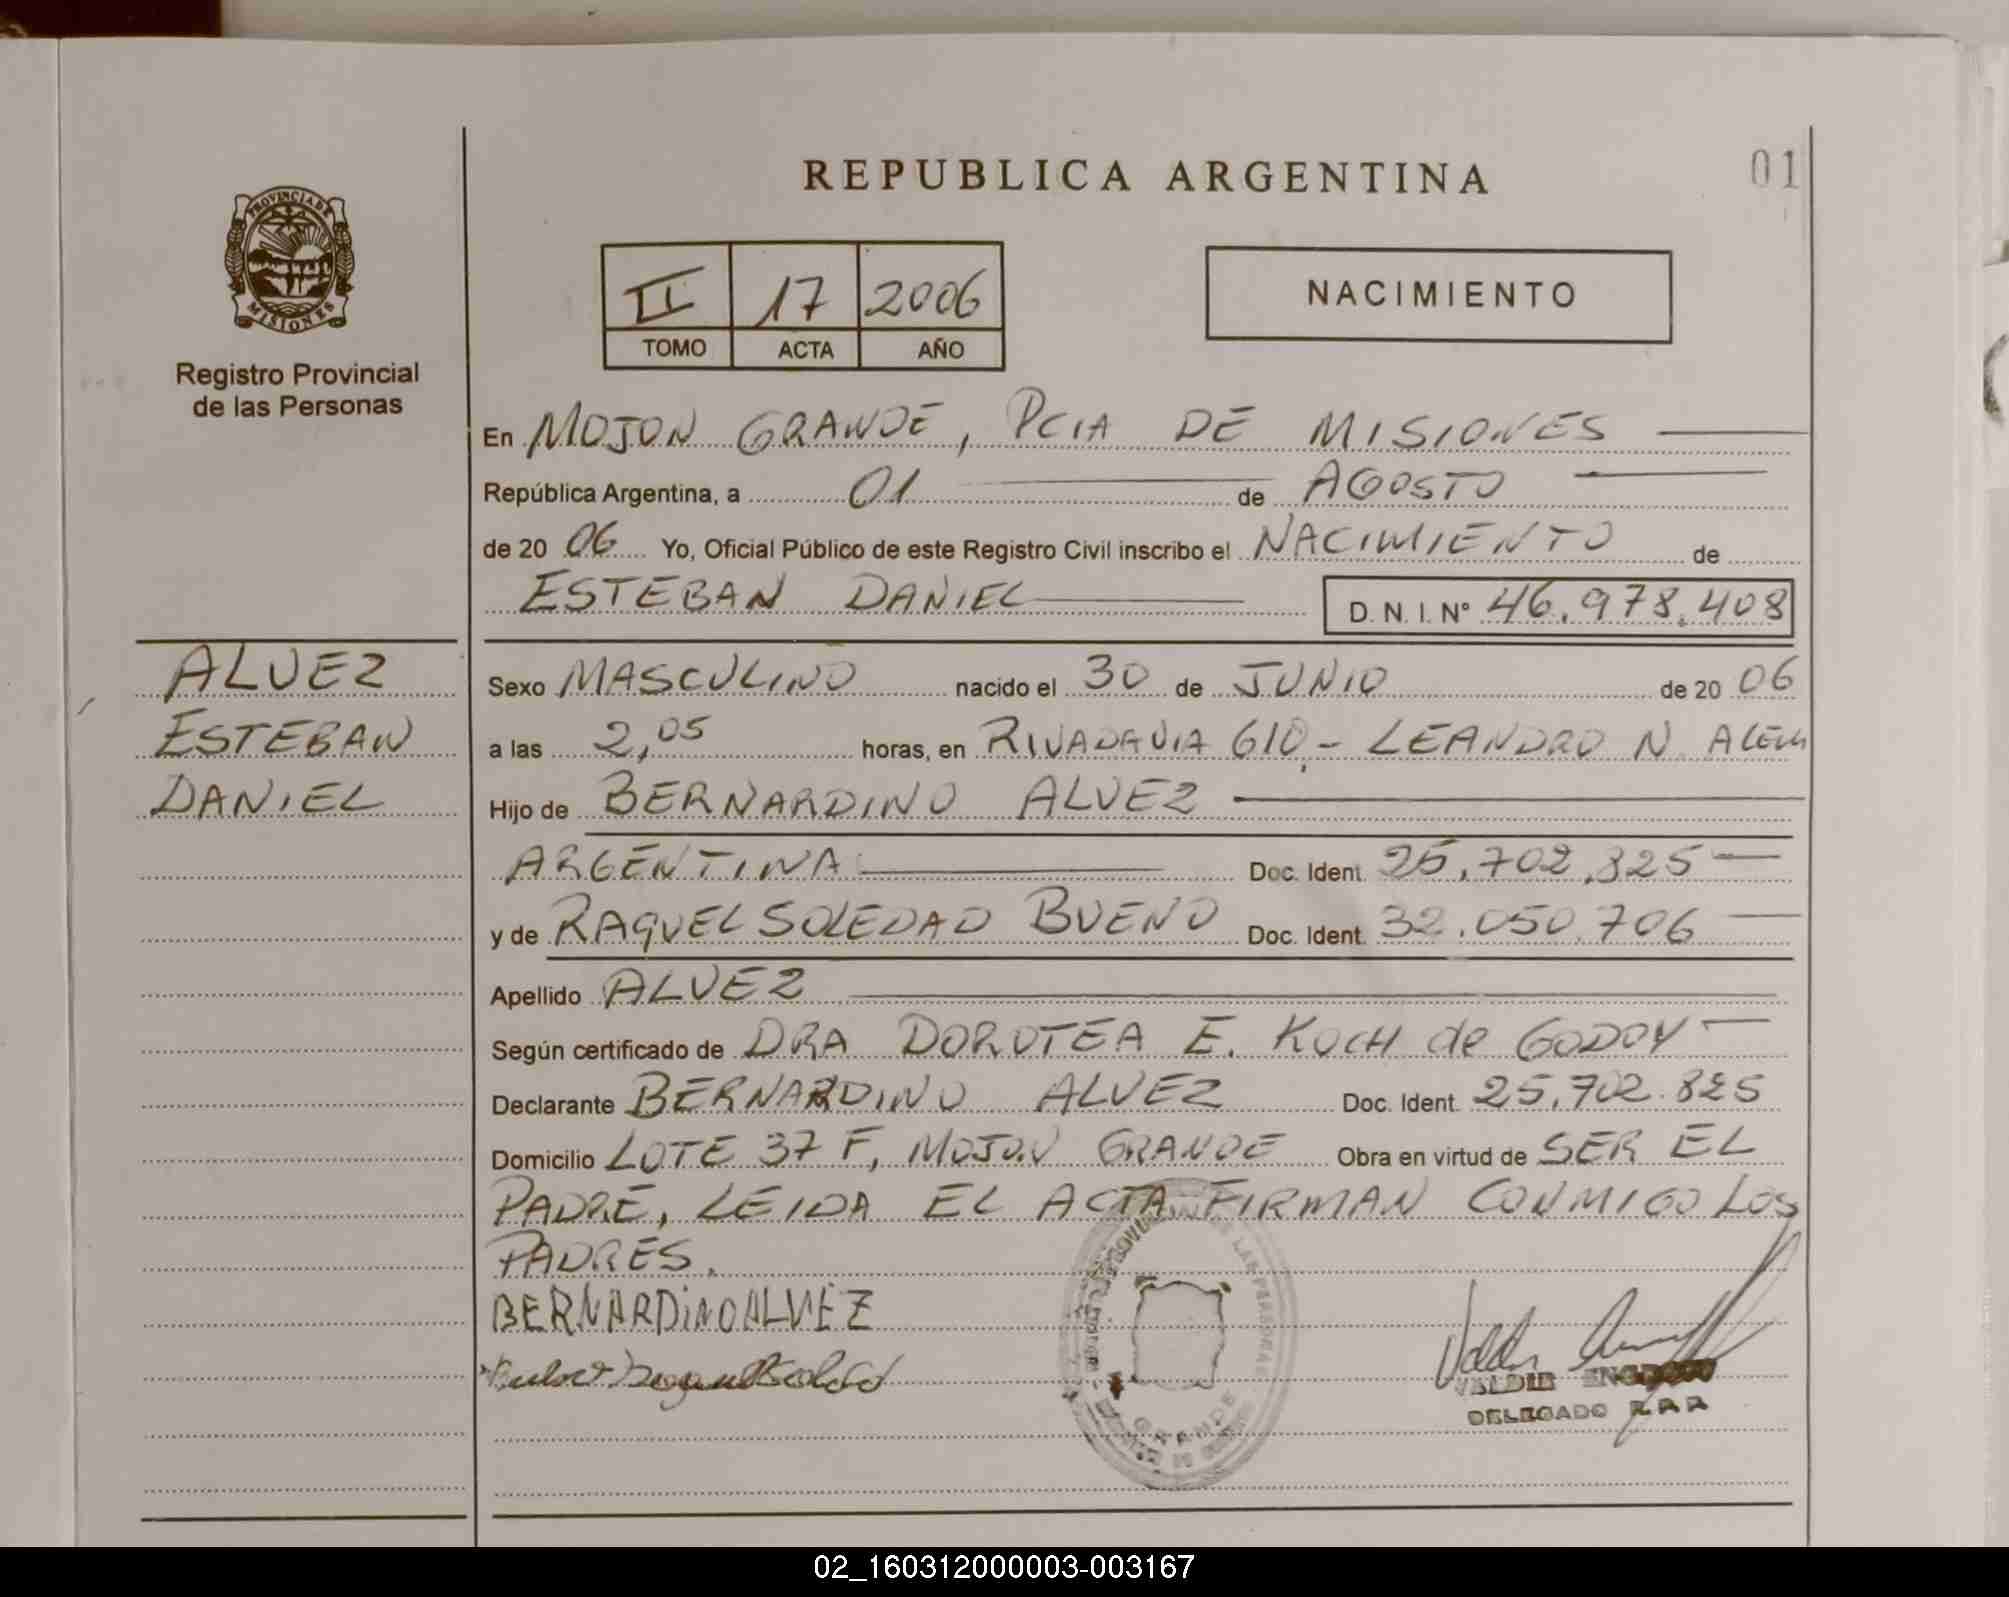 REPUBLICA ARGENTINA
01
PROVINCIA DE
MISIONES
Registro Provincial
de las Personas
II 17 2006
TOMO ACTA AÑO
NACIMIENTO
En MOJON GRANDE, PCIA DE MISIONES
República Argentina, a 01 de AGOSTO
de 20 06 Yo, Oficial Público de este Registro Civil inscribo el NACIMIENTO de
ESTEBAN DANIEL D. N. I. Nº 46.978.408
ALVEZ
ESTEBAN
DANIEL
Sexo MASCULINO nacido el 30 de JUNIO de 20 06
a las 2,05 horas, en RIVADAVIA 610 - LEANDRO N. ALEM
Hijo de BERNARDINO ALVEZ
ARGENTINA Doc. Ident. 25.702.825
y de RAQUEL SOLEDAD BUENO Doc. Ident. 32.050.706
Apellido ALVEZ
Según certificado de DRA DOROTEA E. KOCH de GODOY
Declarante BERNARDINO ALVEZ Doc. Ident. 25.702.825
Domicilio LOTE 37 F, MOJON GRANDE Obra en virtud de SER EL
PADRE, LEIDA EL ACTA FIRMAN CONMIGO LOS
PADRES.
BERNARDiNO ALVEZ
DE LAS PERSONAS
GRANDE
DELEGADO R.P.P.
02_160312000003-003167